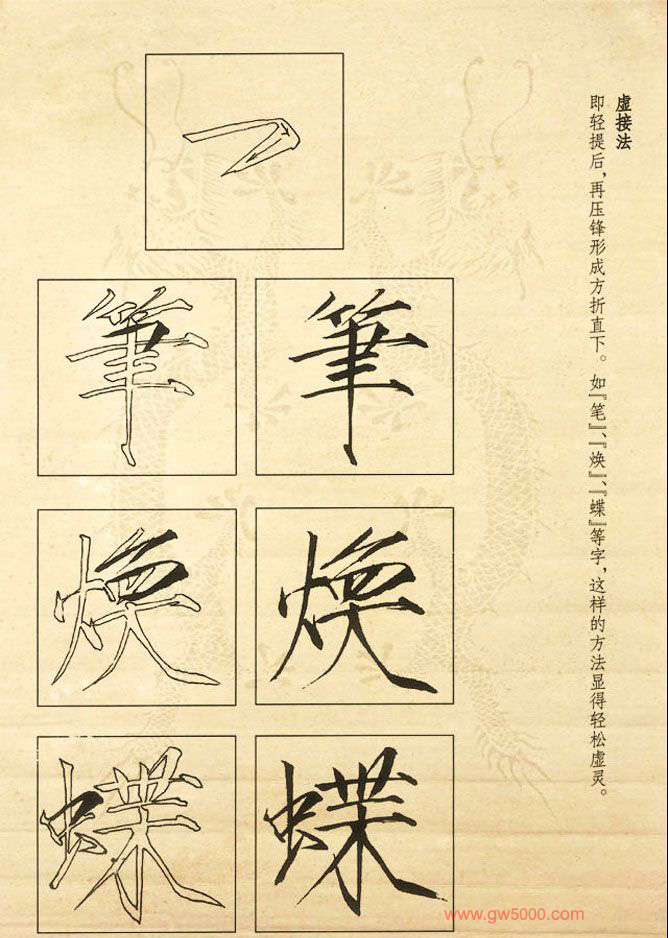 虚接法
即轻提后，再压锋形成方折直下。如『笔』、『焕』、『蝶』等字，这样的方法显得轻松虚灵。
筆 筆
焕 焕
蝶 蝶
www.gw5000.com